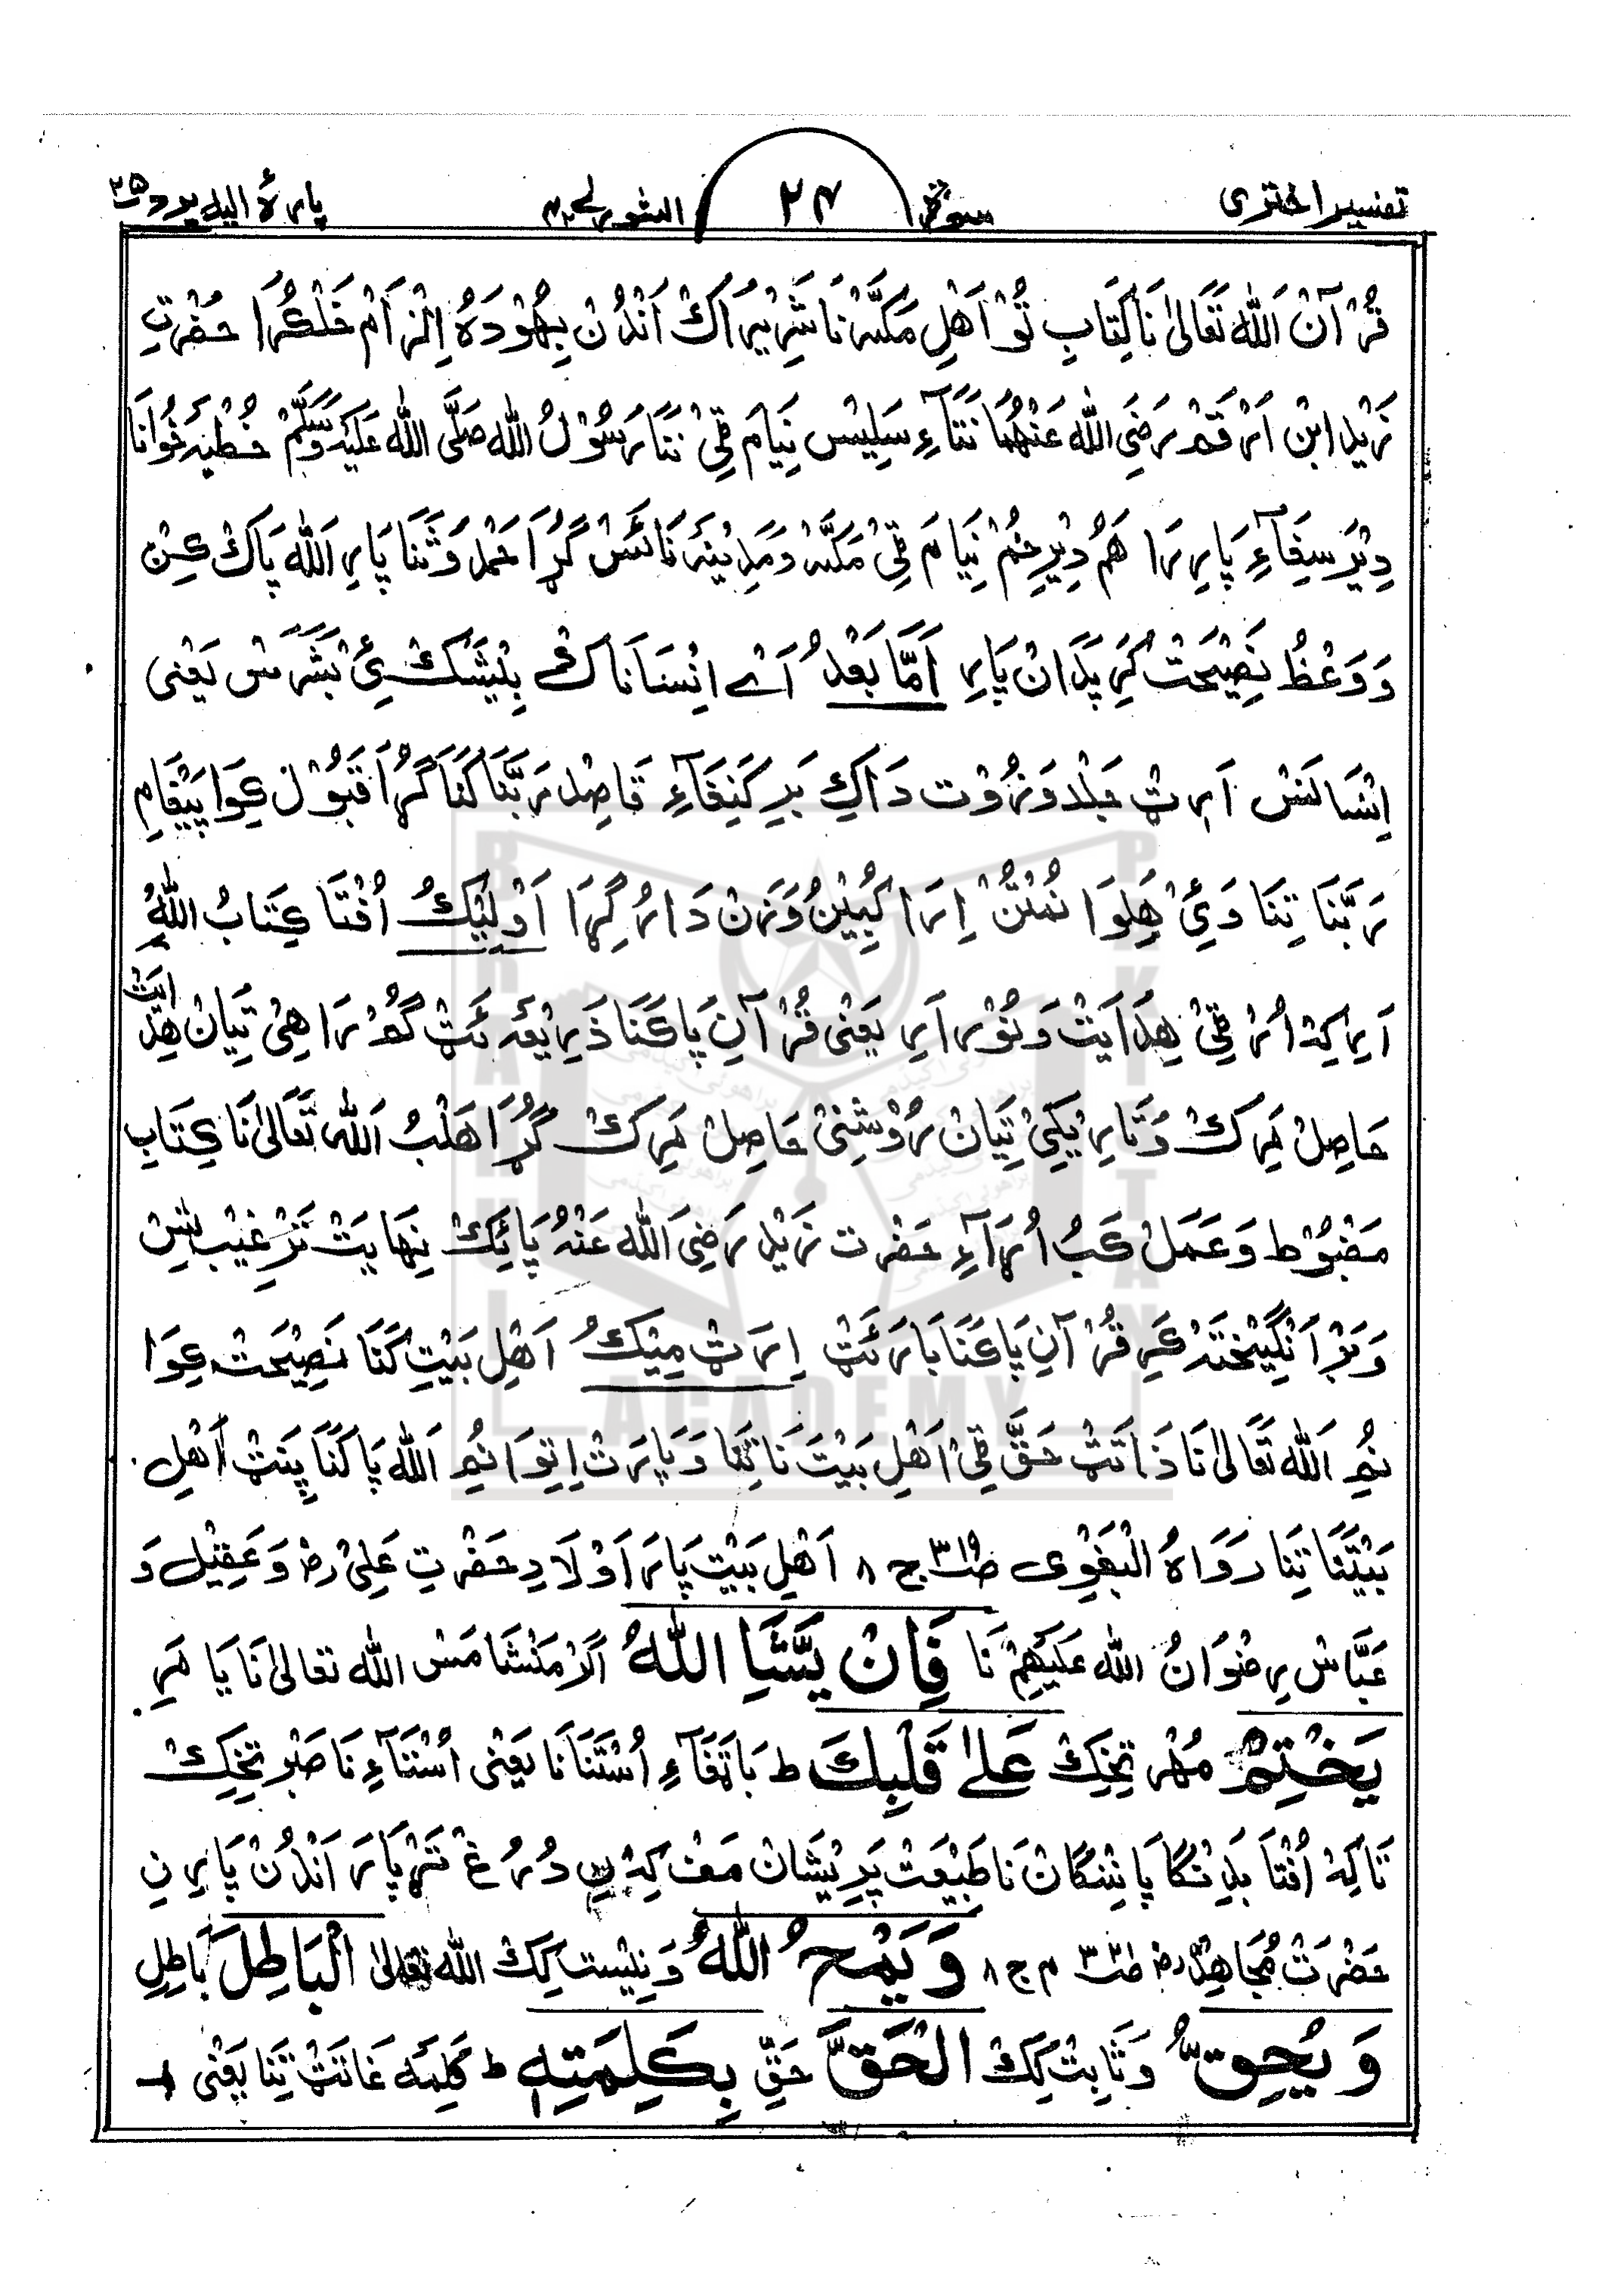 تفسیر اختری سورة ۲۴ الشوریٰ ۴۲ پارۂ الیہ یرد ۲۵
قُرْآنْ اَللّٰہ تَعَالیٰ نَا کِتَابِ تُوْ اَھْلِ مَکَّہْ نَا شَرِیْرَاکْ اَنْدُنْ بِیْھُوْدَہُ اِلْزَامْ خَلْکُرَا حَضْرَتِ
زَیْد ابْنِ اَرْقَمْ رَضِیَ اللّٰہ عَنْھُمَا نَنَّاءِ سَلِیْس نِیَام ٹِیْ نَنَّا رَسُوْلُ اللّٰہ صَلَّی اللّٰہ عَلَیْہِ وَسَلَّمْ خُطْبَہ خُوَانَا
دِیْر سِفَآءِ پَارِرَا ھَمُ دِیْرِ خُمْ نِیَام ٹِیْ مَکَّہْ وَمَدِیْنَہ نَا ئَسْ گُڑَا حَمْد وَثَنَا پَارِ اَللّٰہ پَاکْ کِنْ
وَوَعْظُ نَصِیْحَتْ کَرِ پَدَانْ پَارِ اَمَّا بَعْدُ اَے اِنْسَانَاکْ بِلیْشَکْ ئِیْ بَشَرَسْ یَعْنی
اِنْسَانَسْ اَرِٹْ جَلْد وَزُوْت دَاکِ بَرِ کَنِغَآءِ قَاصِد رَبَّنَا کَنَا گُڑَا قَبُوْل کِوَا پَیْغَامِ
رَبَّنَا تِنَا وَئِیْ ھِلِوَا نُمْتُنْ اِرَا کُبِیْنُ وَزَنْ دَار گِڑَا اَوْلِیْکُ اُفْتَا کِتَابُ اللّٰہُ
اَرِ کِہْ اُرُ ٹِیْ ھِدَایَتْ وَنُوْر اَرِ یَعْنی قُرْآنِ پَاکَنَا ذَرِیْعَہ ئَٹْ گُمْرَاھِیْ تِیَانْ ھِدَایَتْ
حَاصِلْ مَرِکْ وَتَارِیْکِیْ تِیَانْ رُوْشِنیْ حَاصِلْ مَرِکْ گُڑَا ھَلْبُ اَللّٰہ تَعَالیٰ نَا کِتَابِ
مَضْبُوْط وَعَمَلْ کَبُ اُڑَآءِ حَضْرَت زَیْد رَضِیَ اللّٰہ عَنْہُ پَائِکْ نِھَایَتْ تَرْغِیْب تِسْ
وَبَرْاَنْگِیْخْتَہْ کَرِ قُرْآنِ پَاکَنَا بَارَئَٹْ اِرَٹْمِیْکُ اَھْلِ بَیْتِ کَنَا نَصِیْحَتْ کِوَا
نُمِ اَللّٰہ تَعَالیٰ نَا ذَاتَٹْ حَقِّ ٹِیْ اَھْلِ بَیْتَ نَا تِنَا وَیَارَتْ اِتِوَا نُمِ اَللّٰہ پَاکَنَا پِنَٹْ اَھْلِ
بَیْتَنَا تِنَا رَوَاہُ الْبَغْوِی صـ۳۱۹ ج ۸ اَھْلِ بَیْت پَارَ اَوْلَادِ حَضْرَتِ عَلِیْ رض وَعَقِیْل وَ
عَبَّاسْ رِضْوَانُ اللّٰہ عَلَیْھِمْ نَا فَاِنْ یَّشَاِ اللّٰہُ اَلَا مَنْشَا مَسْ اللّٰہ تعالیٰ نَا یَا مَرِ
یَخْتِمْ مُھْر تِخِکْ عَلیٰ قَلْبِکَ ط بَاتَغَاءِ اُسْتَنَا نَا یَعْنی اُسْتَآءِ نَا صَبْر تِخِکْ
تَاکِہْ اُفْتَا بَدِنْگَا پَائِنْگَانْ نَا طَبِیْعَتْ پَرِیْشَانْ مَفْ کِہْ دُرُغْ تَڑْپَارَ اَنْدُنْ پَارِنِ
حَضْرَتْ مُجَاھِدْ رض م ج ۸ وَیَمْحُ اللّٰہُ وَنِیْست کِکْ اللّٰہ تعالیٰ الْبَاطِلَ بَاطِلِ
وَیُحِقُّ وَثَابِتْ کِکْ الْحَقَّ حَقِّ بِکَلِمٰتِہٖ ط کَلِمَہ غَاتَٹْ تِنَا یَعْنی